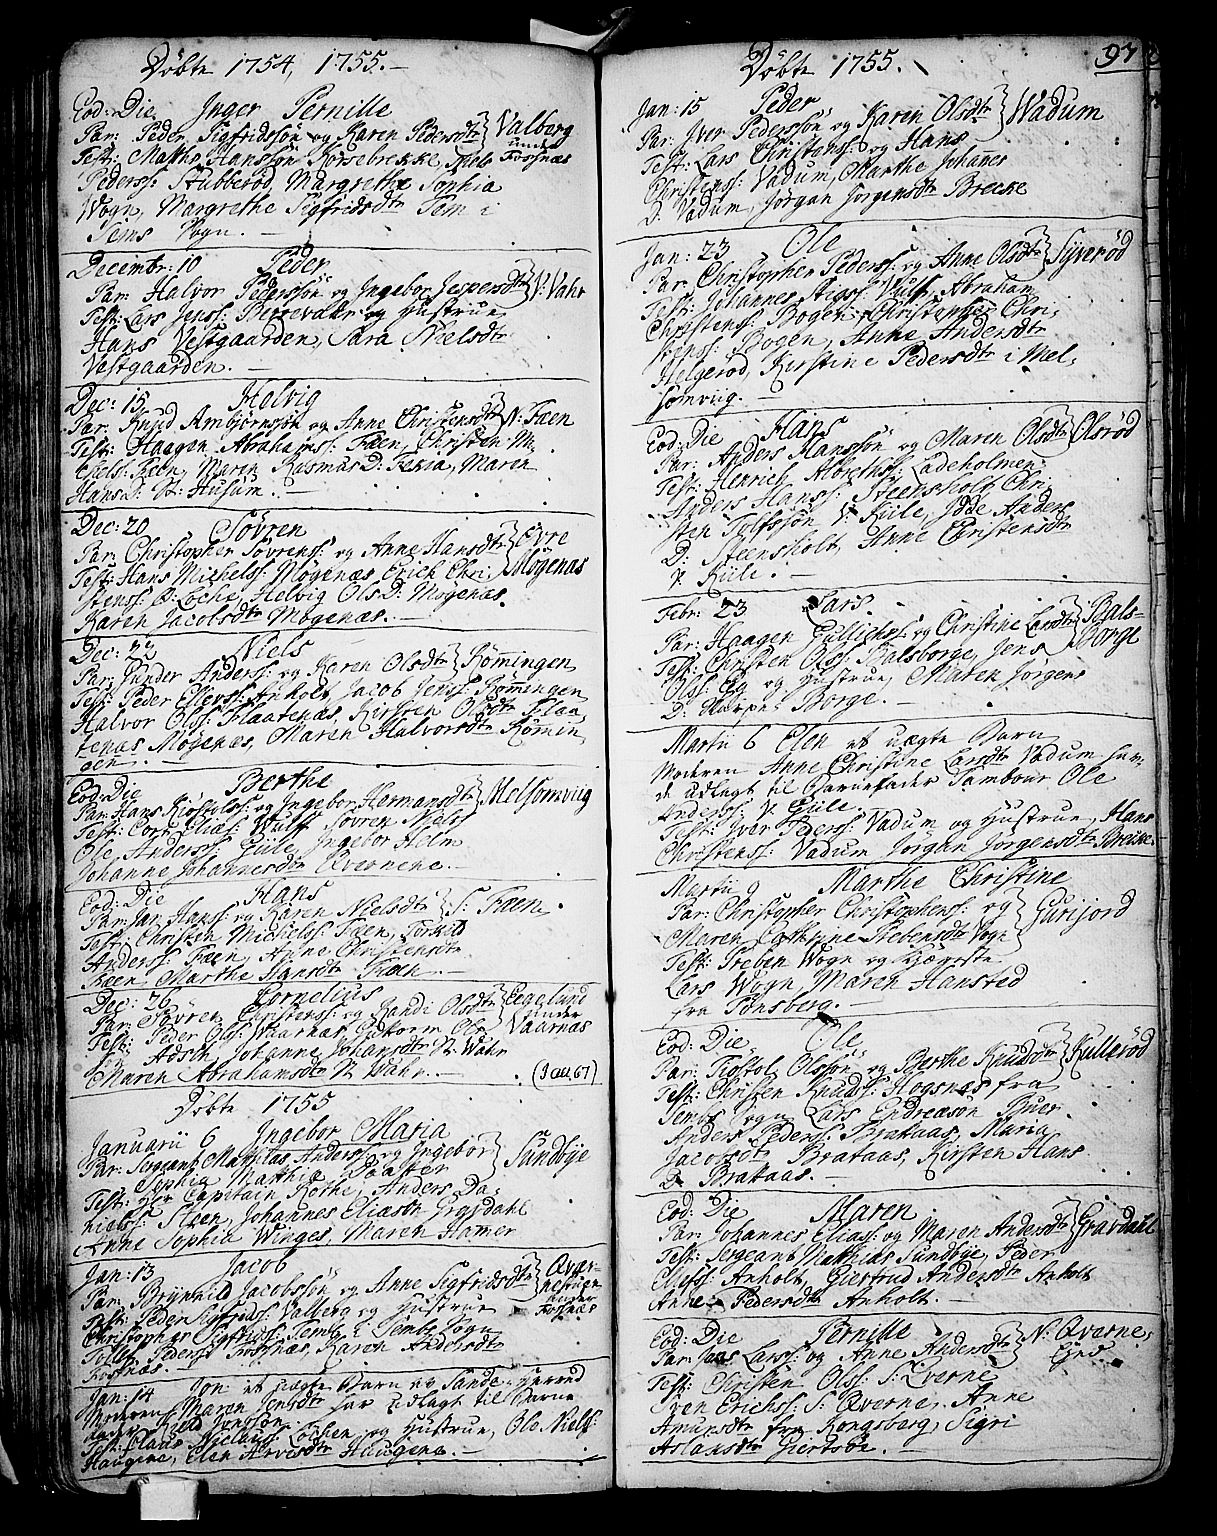 Döbte 1754, 1755.
Eod: Die Inger Pernille
Par: Peder Sigfridssön og Karen Pedersdtr Valberg
Test: Mathis Hansson Korsebrekke, Niels under Fossnæs
Pederss: Stubberöd, Margrethe Sophia
Wogn, Margrethe Sigfridsdtr Sem i
Sems Sogn.
Decembr: 10 Peder
Par: Halvor Pederssön og Ingebor Jespersdtr N: Vahr
Test: Lars Jenss: Berrevahr og Hustrue
Hans Vestgaarden, Sara Nielsdtr
Vestgaarden.
Dec: 15 Helvig
Par: Knud Arnbjörnssön og Anne Christensdtr N: Faen
Test: Haagen Abrahamss: Faen, Christen Mi:
chels: Faen, Maren Rasmus D: Fenia, Maren
Hans D: N: Husum.
Dec: 20 Sövren
Par: Christopher Sövrens: og Anne Hansdtr Övre
Test: Hans Michelss: Mögenæs Erich Chri: Mögenæs
stenss: Ö: Loche, Helvig Ols D: Mögenæs.
Karen Jacobsdtr Mögenæs.
Dec: 22 Niels
Par: Gunder Anderss: og Karen Olsdtr Römmingen
Test: Peder Ellevss: Anholt, Jacob Jenss: Römingen
Halvor Olss: Flaatenæs, Kirsten Olsdtr Flaa:
tenæs Mögenæs, Maren Halvorsdtr Römin
gen.
Eod: Die Berthe
Par: Hans Kiöstulss: og Ingebor Hermansdtr Melsomviig
Test: Cort Elias: Wulff Sövren Niels
Ole Anderss: Giile, Ingebor Helm
Johanne Johannesdtr Qvernene.
Eod: Die Hans
Par: Jan Hanss: og Karen Nielsdtr S: Faen
Test: Christen Michelss: Faen, Torkild
Anderss: Faen, Anne Christensdtr
Faen, Marthe Hansdtr Faen.
Dec: 26 Cornelius
Par: Sövren Christenss: og Randi Olsdtr Egelund
Test: Peder Olss: Vaarnæs, Guttorm Ols under Vaarnæs
Adsen, Johanne Johansdtr N: Wahr
Maren Abrahamsdtr N: Wahr.
Döbte 1755
Januarii 6 Ingebor Maria
Par: Sergeant Mathias Anderss: og Ingebor Sundbye
Sophia Matthia Paaster
Test: Hr Capitain Rothe, Anders Da:
nielss: Steen, Johannes Eliasön Gravdahl
Anne Sophia Winges, Maren Hamer
Jan: 13 Jacob
Par: Brynild Jacobssön og Anne Sigfridsdtr Qvær-
Test: Peder Sigfrids: Valberg og Hustrue nestuen under Fossnæs
Christopher Sigfrids: Semb i Sembs Sogn
Tollef Pederss: Fossnæs, Karen Andersdtr
Fossnæs.
Jan: 14 Jon et uægte Barn av Sande-Herred
Moderen Maren Jensdtr har udlagt til Barne
fader Keld Jonsson
Test: Claus Nielsss: Lochen og Hustrue, Ole Niels:
Haugene, Elen Arvesdtr Haugene.
Döbte 1755.
97
Jan: 15 Peder
Par: Iver Pederssön og Karen Olsdtr Wadum
Test: Lars Christenss: og Hans
Christenss: Vadum, Marthe Johannes
D: Vadum, Jörgan Jörgensdtr Brecke
Jan: 23 Ole
Par: Christopher Pederss: og Anne Olsdtr Syveröd
Test: Johannes Wulf, Abraham
Christenss: Bogen, Christopher Chri:
stenss: Bogen, Anne Andersdtr
Helgeröd, Kirstine Pedersdtr i Mel:
somviig.
Eod: Die Hans
Par: Anders Hanssön og Maren Olsdtr Olsröd
Test: Henrich Albretss: Ladeholmen
Anders Hanss: Steensholt Chri:
sten Tolfssön V: Kiile, Idde Anders
D: Steensholt, Anne Christensdtr
V: Kiile.
Febr: 23 Lars
Par: Haagen Gullichss: og Christine Larsdtr Bals-
Test: Christen Olss: Balsborge, Jens Borge
Olss: Eg og Hustrue, Maren Jörgens
D: Borge.
Martii 6 Elen et uægte Barn
Moderen Anne Christine Larsdtr Vadum hav:
de udlagt til Barnefader Tambour Ole
Anderss: V: Giile.
Test: Iver Pederss: Vadum og Hustrue, Hans
Christenss: Vadum Jörgan Jörgensdtr Breike.
Martii 9 Marthe Christine
Par: Christopher Christophenss: og Gurijord
Maren Cathrine Trebensdtr Vogn
Test: Treben Wogn og Kiæreste
Lars Wogn Maren Hansted
fra Tönsberg.
Eod: Die Ole
Par: Tiöstol Olssön og Berthe Knudsdtr Kulleröd
Test: Christen Knuds: Hogsnæs fra
Sembs Sogn Lars Endresön Buer
Anders Pederss: Brataas, Maria
Jacobsdtr Brataas, Kirsten Hans
D: Brataas.
Eod: Die Maren
Par: Johannes Eliass: og Maren Andersdtr Gravdahl
Test: Sergeant Mathias Sundbye, Peder
Ellefss: Anholt, Giertrud Andersdtr Anholt
Anne Pedersdtr Anholt.
Eod: Die Pernille
Par: Jens Larss: og Anne Andersdtr N: Qverne,
Test: Christen Olss: S: Qverne Ejed.
Even Erichs: S: Qverne, Anne
Amunsdtr fra Kongsberg, Sigri
Aslansdtr Giertsöe.